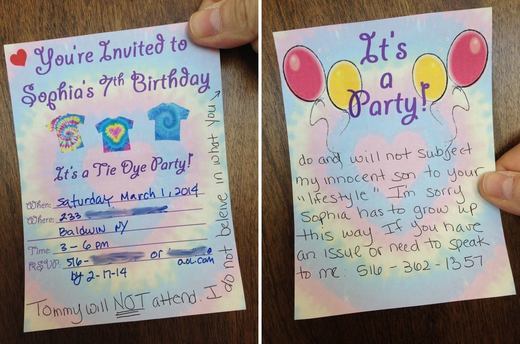 You're Invited to
Sophia's 7th Birthday
It's a Tie Dye Party!
When: Saturday March 1, 2014
Where: 233
Baldwin NY
Time: 3 - 6 pm
RSVP: 516- or
aol.com
by 2-17-14
Tommy will NOT attend. I
do not beleive in what you
It's
a
Party!
do and will not subject
my innocent son to your
"lifestyle". I'm sorry
Sophia has to grow up
this way. If you have
an issue or need to speak
to me: 516-362-1357